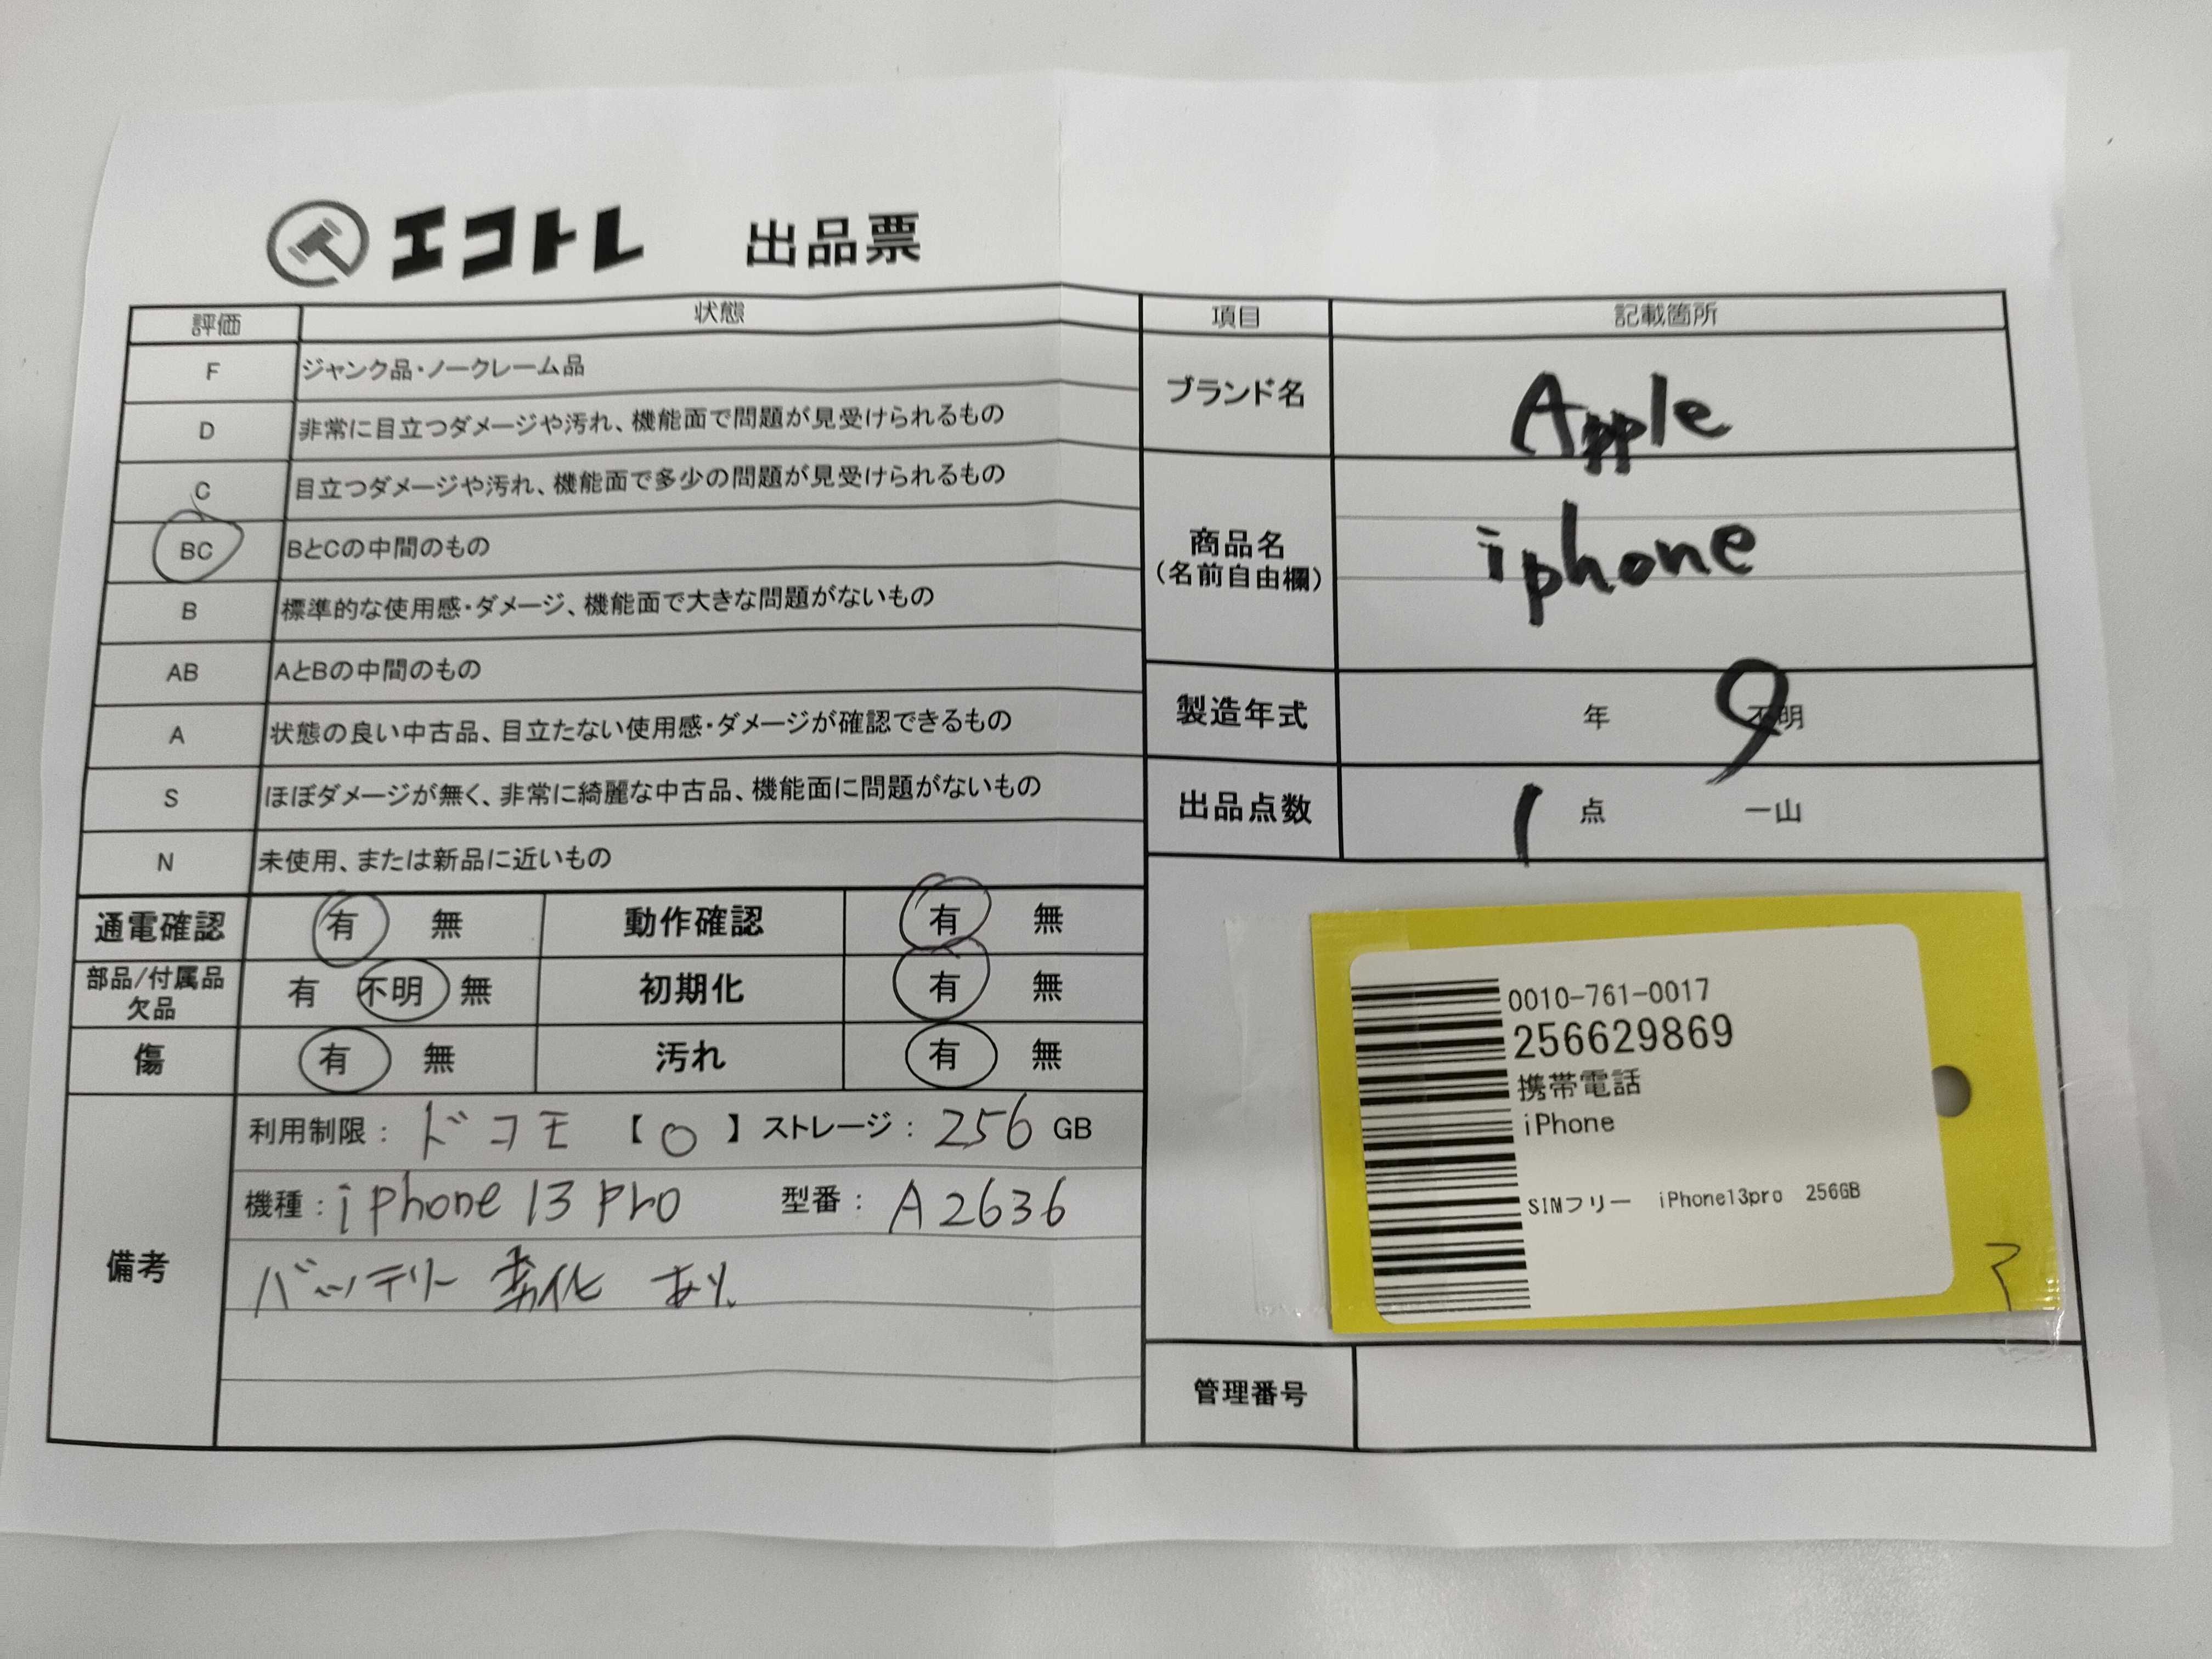 エコトレ 出品票
評価 状態
F ジャンク品・ノークレーム品
D 非常に目立つダメージや汚れ、機能面で問題が見受けられるもの
C 目立つダメージや汚れ、機能面で多少の問題が見受けられるもの
BC BとCの中間のもの
B 標準的な使用感・ダメージ、機能面で大きな問題がないもの
AB AとBの中間のもの
A 状態の良い中古品、目立たない使用感・ダメージが確認できるもの
S ほぼダメージが無く、非常に綺麗な中古品、機能面に問題がないもの
N 未使用、または新品に近いもの
通電確認 有 無 動作確認 有 無
部品/付属品 欠品 有 不明 無 初期化 有 無
傷 有 無 汚れ 有 無
備考
利用制限: ドコモ 【 〇 】 ストレージ: 256 GB
機種: iphone 13 pro 型番: A2636
バッテリー 劣化 あり
項目 記載箇所
ブランド名 Apple
商品名
(名前自由欄)
iphone
製造年式 年 不明
出品点数 1 点 一山
0010-761-0017
256629869
携帯電話
iPhone
SIMフリー iPhone13pro 256GB
管理番号